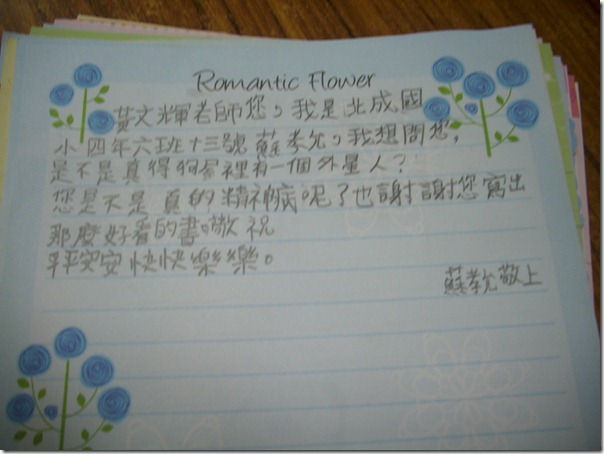 Romantic Flower
黃文輝老師您，我是北成國
小四年六班十三號蘇孝允，我想問您，
是不是真得狗屋裡有一個外星人？
您是不是真的精神病呢了也謝謝您寫出
那麼好看的書。敬祝
平平安安快快樂樂。
蘇孝允敬上